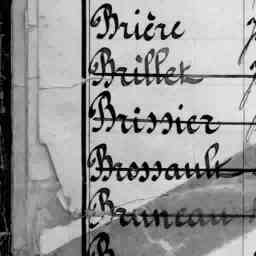 Brière
Brillet
Brissier
Brossault
Bruneau